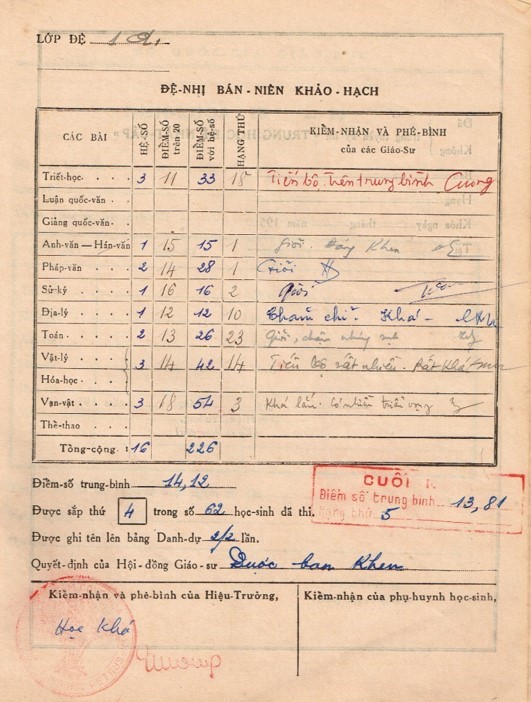 LỚP ĐỆ 1 A1
ĐỆ-NHỊ BÁN-NIÊN KHẢO-HẠCH
CÁC BÀI HỆ SỐ ĐIỂM-SỐ trên 20 ĐIỂM-SỐ với hệ-số HẠNG THỨ KIỂM-NHẬN VÀ PHÊ-BÌNH của các Giáo-Sư
Triết-học 3 11 33 18 Tiến bộ trên trung bình Cương
Luận quốc-văn
Giảng quốc-văn
Anh-văn — Hán-văn 1 15 15 1 Giỏi. Đáng Khen
Pháp-văn 2 14 28 1 Giỏi
Sử-ký 1 16 16 2 Giỏi
Địa-lý 1 12 12 10 Chăm chỉ. Khá
Toán 2 13 26 23 Giỏi,
Vật-lý 3 14 42 14 Tiến bộ rất nhiều. Rất Khá
Hóa-học
Vạn-vật 3 18 54 3 Khá lắm. Có nhiều triển vọng
Thể-thao
Tổng-cộng : 16 226
Điểm-số trung-bình 14,12
CUỐI
Điểm số trung bình 13,81
Hạng thứ 5
Được sắp thứ 4 trong số 62 học-sinh đã thi.
Được ghi tên lên bảng Danh-dự 2/2 lần.
Quyết-định của Hội-đồng Giáo-sư Được ban Khen
Kiểm-nhận và phê-bình của Hiệu-Trưởng,
Kiểm-nhận của phụ-huynh học-sinh,
Học Khá